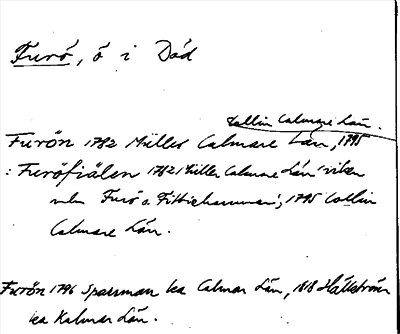 Furö, ö i Död
Collin Calmare Län.
Furön 1782 Müller Calmare Län, 1795
: Furöfiälen 1782 Müller Calmare Län 'viken
mln Furö o. Fittiehammar', 1795 Collin
Calmare Län.
Furön 1796 Sparrman ka Calmar Län, 1818 Hällström
ka Kalmar Län.